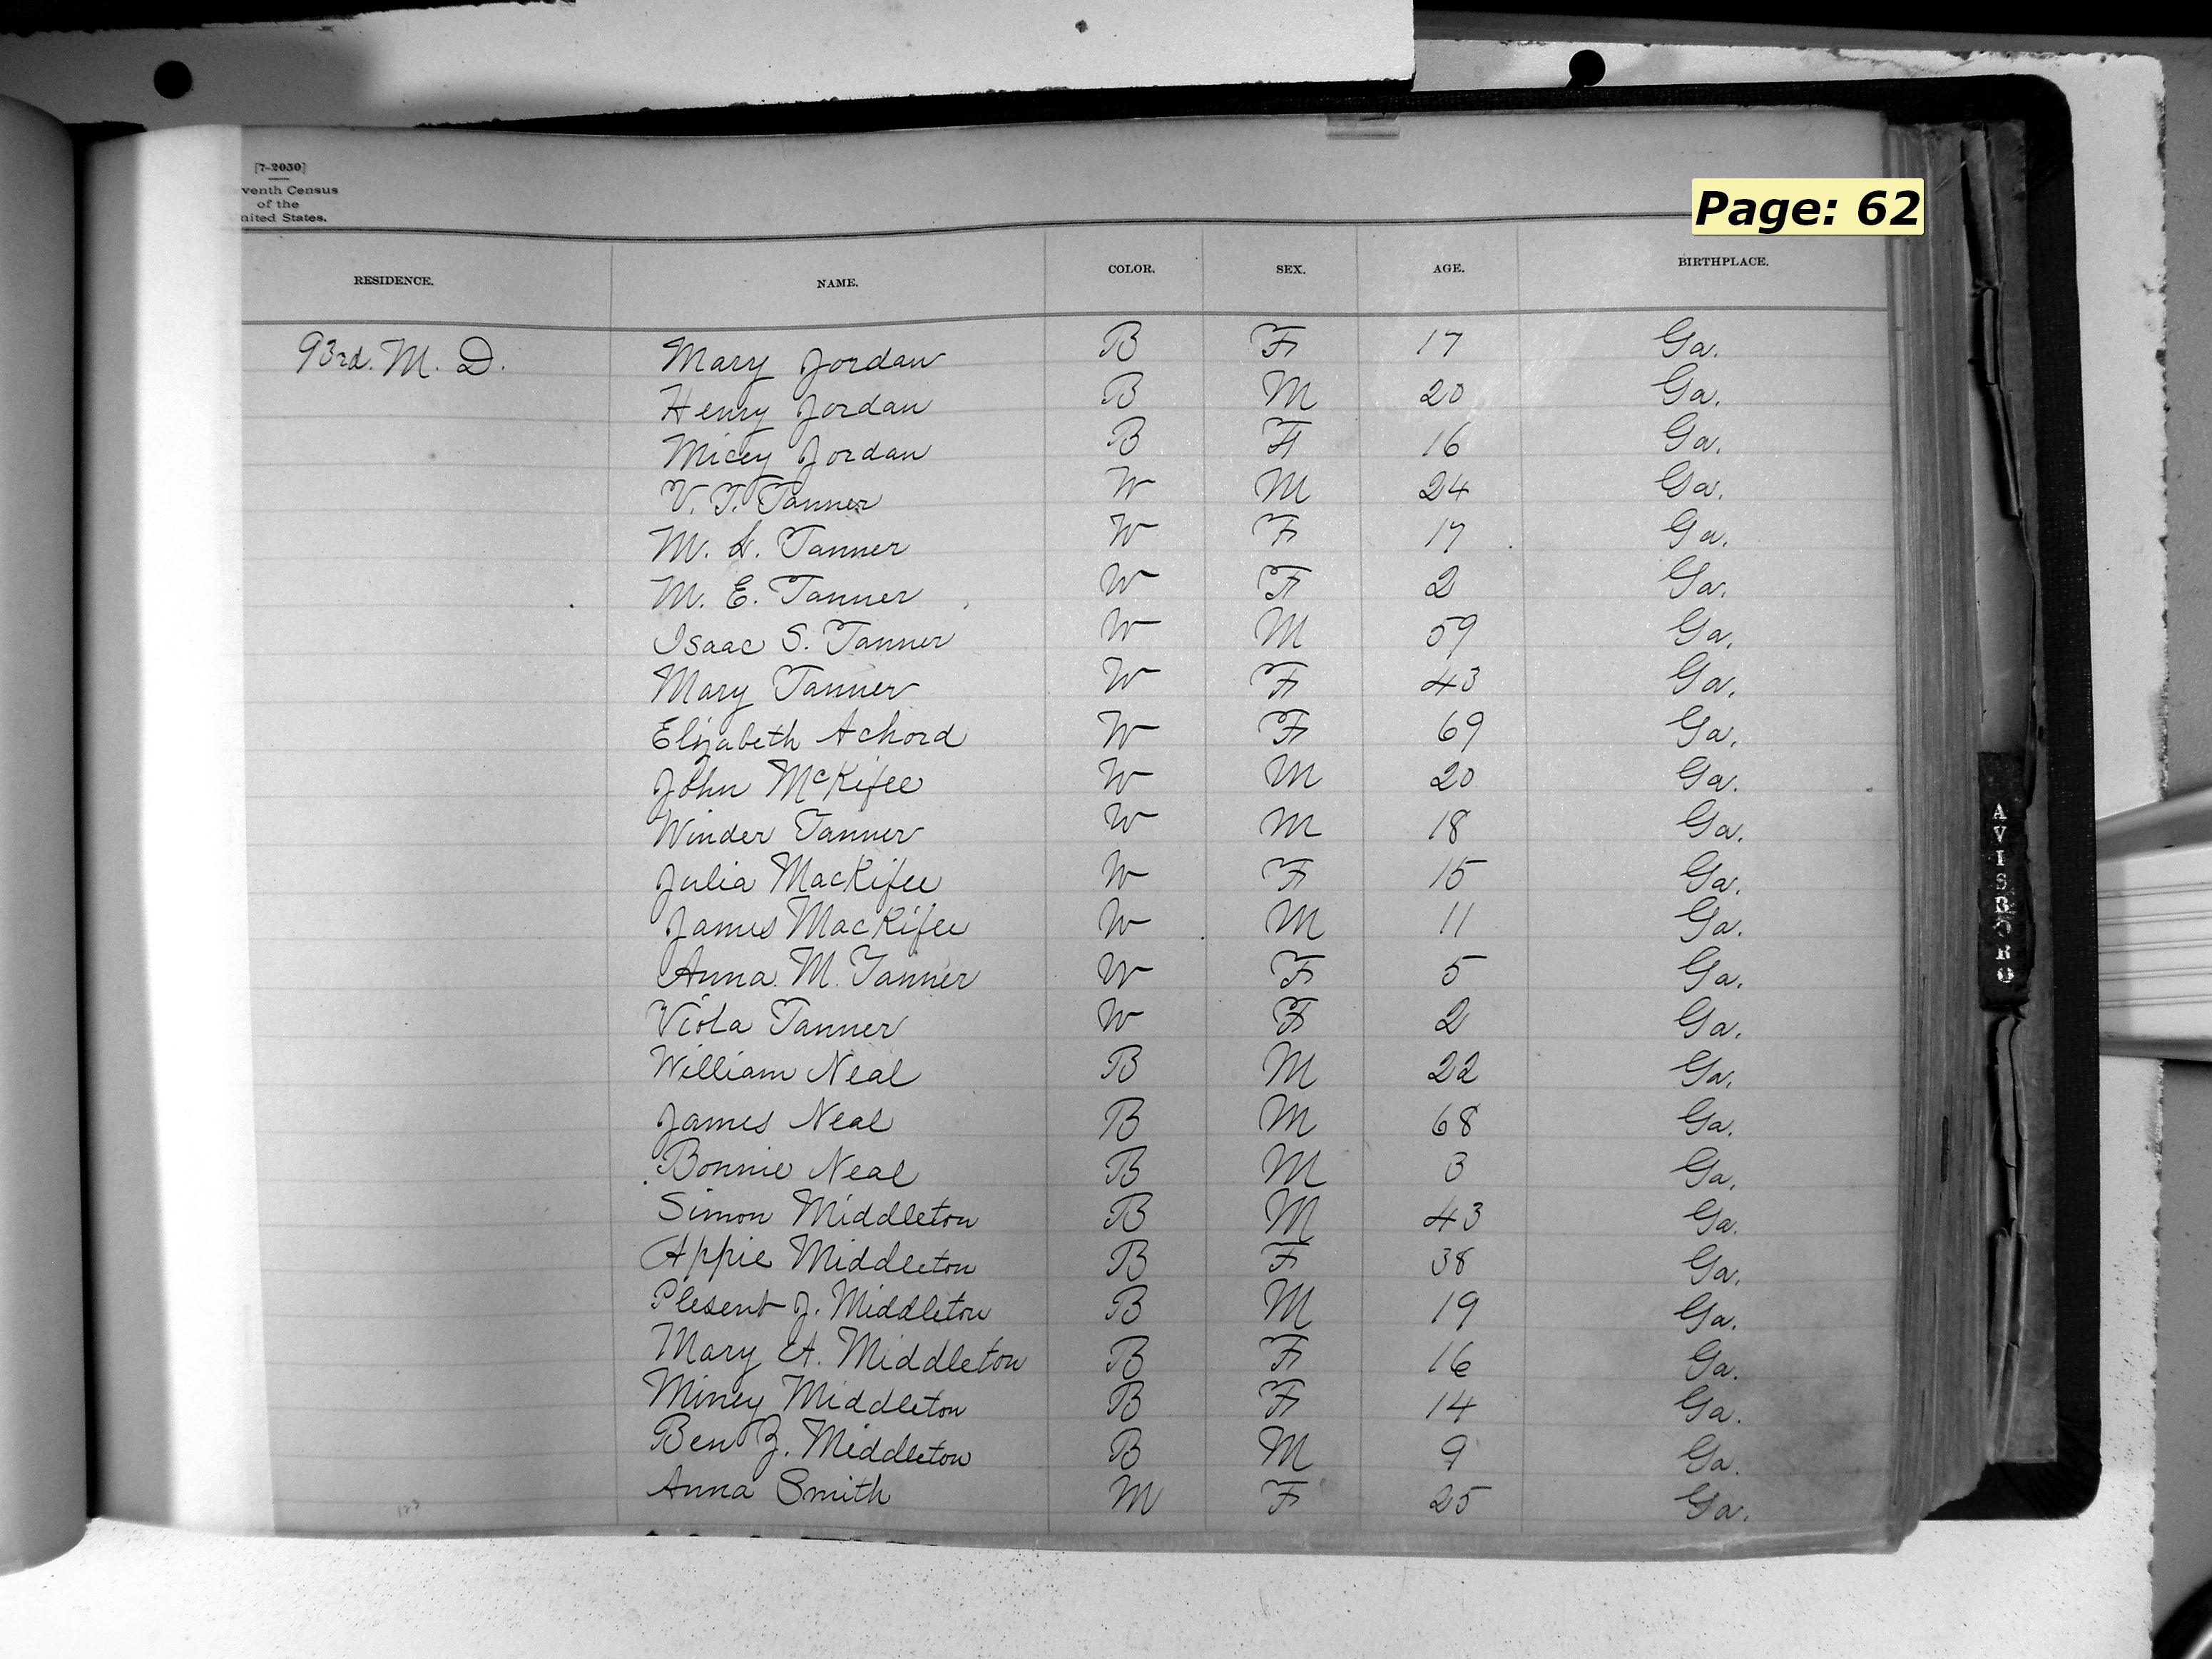 [7-2050]
venth Census
of the
nited States.
Page: 62
RESIDENCE. NAME. COLOR. SEX. AGE. BIRTHPLACE.
93rd. M. D. Mary Jordan B F 17 Ga.
Henry Jordan B M 20 Ga.
Micey Jordan B F 16 Ga.
V. T. Tanner W M 24 Ga.
M. L. Tanner W F 17 Ga.
M. E. Tanner W F 2 Ga.
Isaac S. Tanner W M 59 Ga.
Mary Tanner W F 43 Ga.
Elizabeth Achord W F 69 Ga.
John McKifee W M 20 Ga.
Winder Tanner W M 18 Ga.
Julia MacKifee W F 15 Ga.
James MacKifee W M 11 Ga.
Anna. M. Tanner W F 5 Ga.
Viola Tanner W F 2 Ga.
William Neal B M 22 Ga.
James Neal B M 68 Ga.
Bonnie Neal B M 3 Ga.
Simon Middleton B M 43 Ga.
Appie Middleton B F 38 Ga.
Plesent J. Middleton B M 19 Ga.
Mary A. Middleton B F 16 Ga.
Miney Middleton B F 14 Ga.
Ben Z. Middleton B M 9 Ga.
Anna Smith M F 25 Ga.